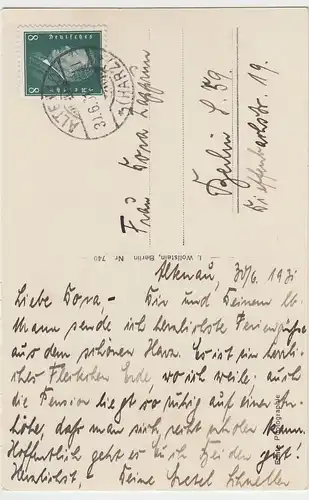 8 Deutsches 8
ALTENAU
30.6.
(HARZ)
Frau Dora
Berlin S. 59
Dieffenbachstr. 19.
I. Wollstein, Berlin Nr 740
Photographie
Altenau, 30/6. 1931
Liebe Dora, - Dir und Deinem lb.
Mann sende ich herzlichste Feriengrüße
aus dem schönen Harz. Es ist ein herrli-
ches Fleckchen Erde, wo ich weile; auch
die Pension liegt so ruhig auf einer An-
höhe, daß man sich recht erholen kann.
Hoffentlich geht es Euch Beiden gut!
Herzlichst, - Deine Gretel